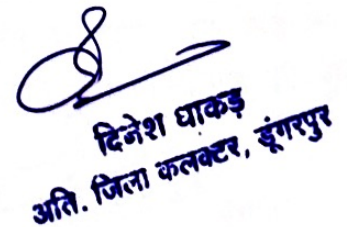 दिनेश धाकड़
अति. जिला कलक्टर, डूंगरपुर